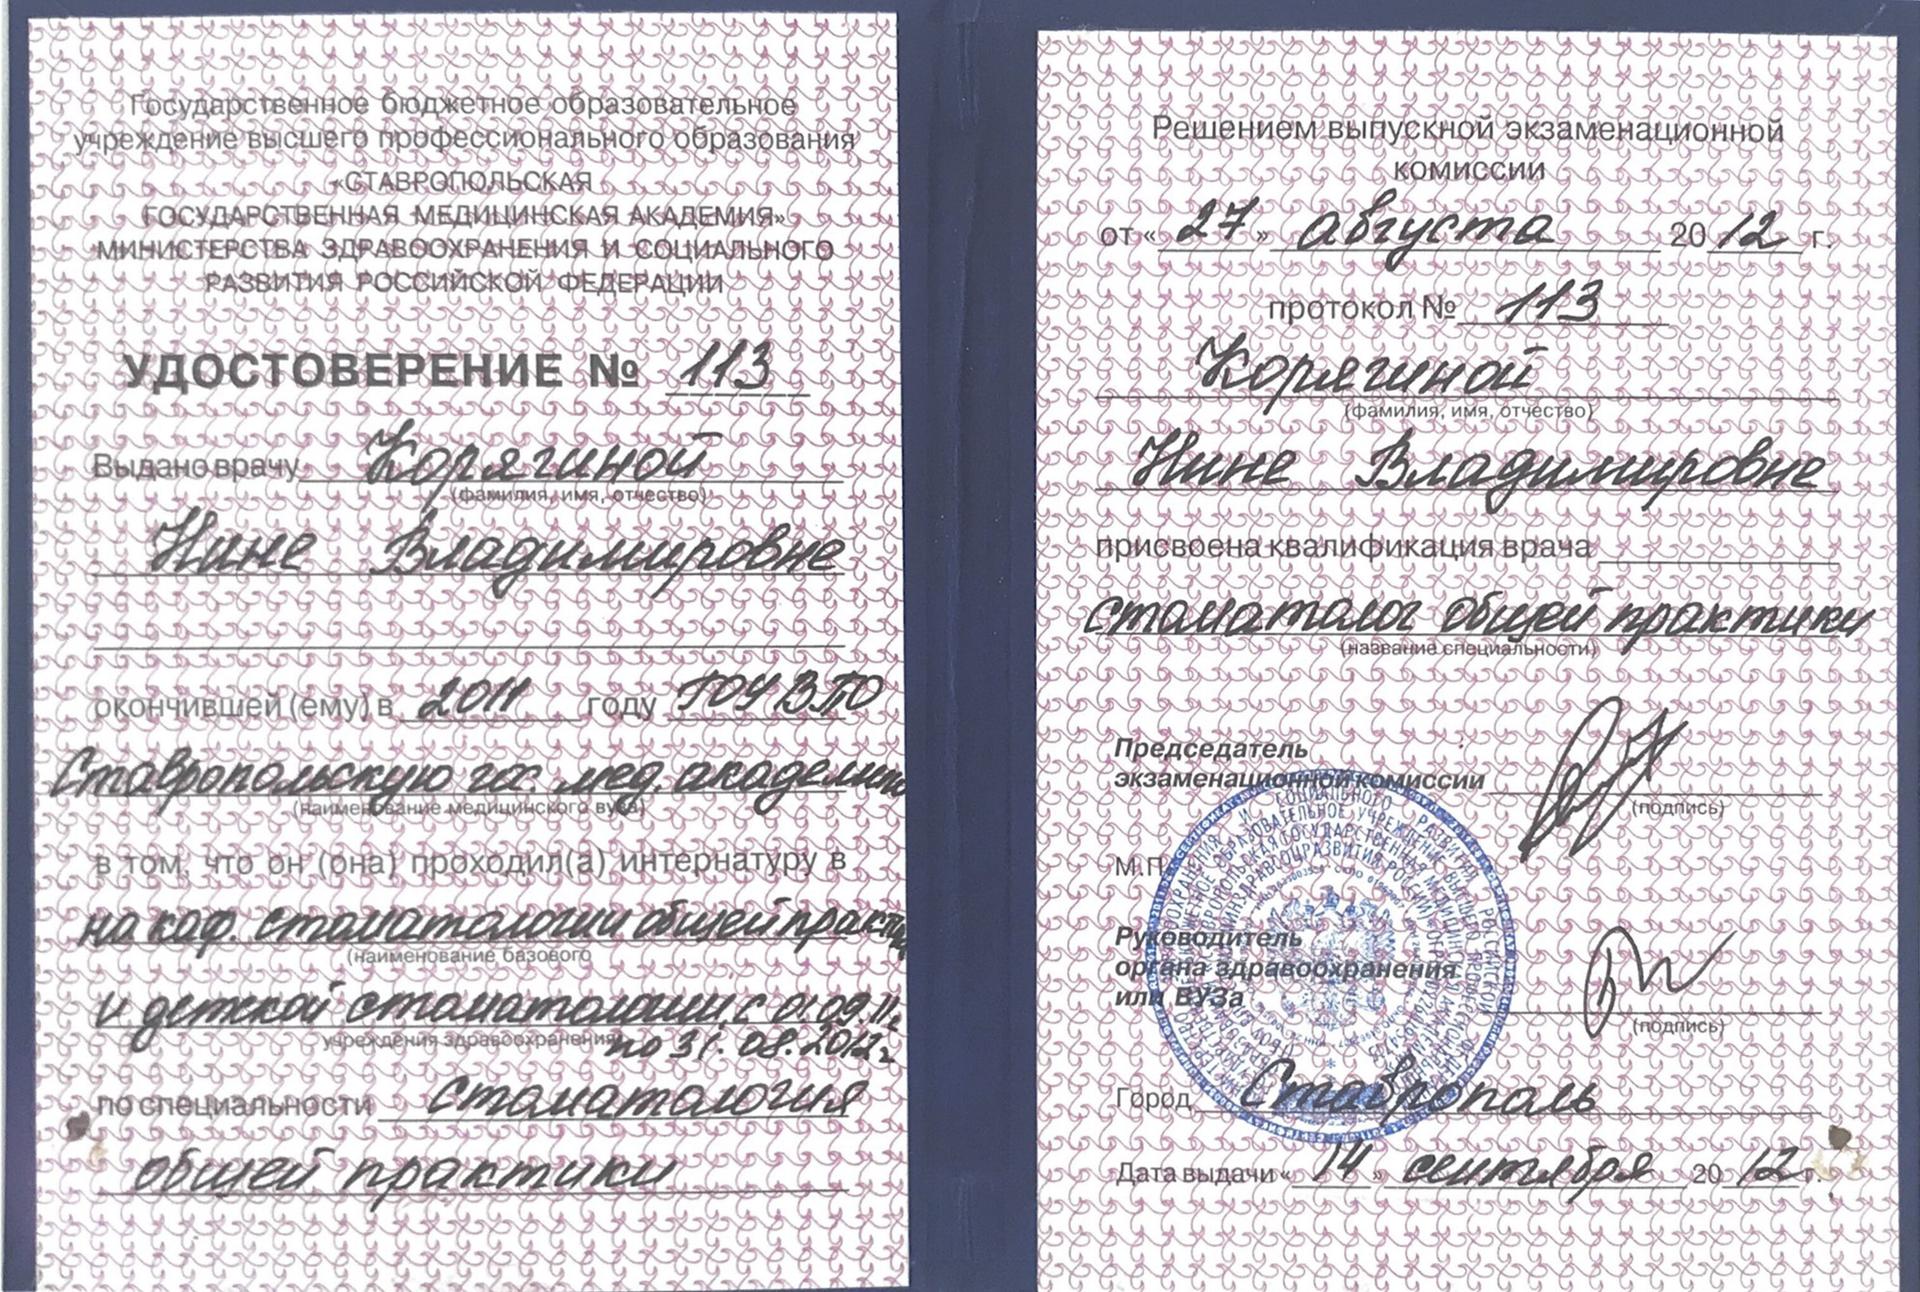 Государственное бюджетное образовательное
учреждение высшего профессионального образования
«СТАВРОПОЛЬСКАЯ
ГОСУДАРСТВЕННАЯ МЕДИЦИНСКАЯ АКАДЕМИЯ»
МИНИСТЕРСТВА ЗДРАВООХРАНЕНИЯ И СОЦИАЛЬНОГО
РАЗВИТИЯ РОССИЙСКОЙ ФЕДЕРАЦИИ
УДОСТОВЕРЕНИЕ № 113
Выдано врачу Корягиной
(фамилия, имя, отчество)
Нине Владимировне
окончившей (ему) в 2011 году ГОУ ВПО
Ставропольскую гос. мед. академию
(наименование медицинского вуза)
в том, что он (она) проходил(а) интернатуру в
на каф. стоматологии общей практики
(наименование базового
и детской стоматологии с 01.09.11г.
учреждения здравоохранения)
по 31.08.2012г.
по специальности стоматология
общей практики
Решением выпускной экзаменационной
комиссии
от « 27 » августа 20 12 г.
протокол № 113
Корягиной
(фамилия, имя, отчество)
Нине Владимировне
присвоена квалификация врача
стоматолог общей практики
(название специальности)
Председатель
экзаменационной комиссии
(подпись)
М.П.
Руководитель
органа здравоохранения
или ВУЗа
(подпись)
Город Ставрополь
Дата выдачи « 14 » сентября 20 12 г.